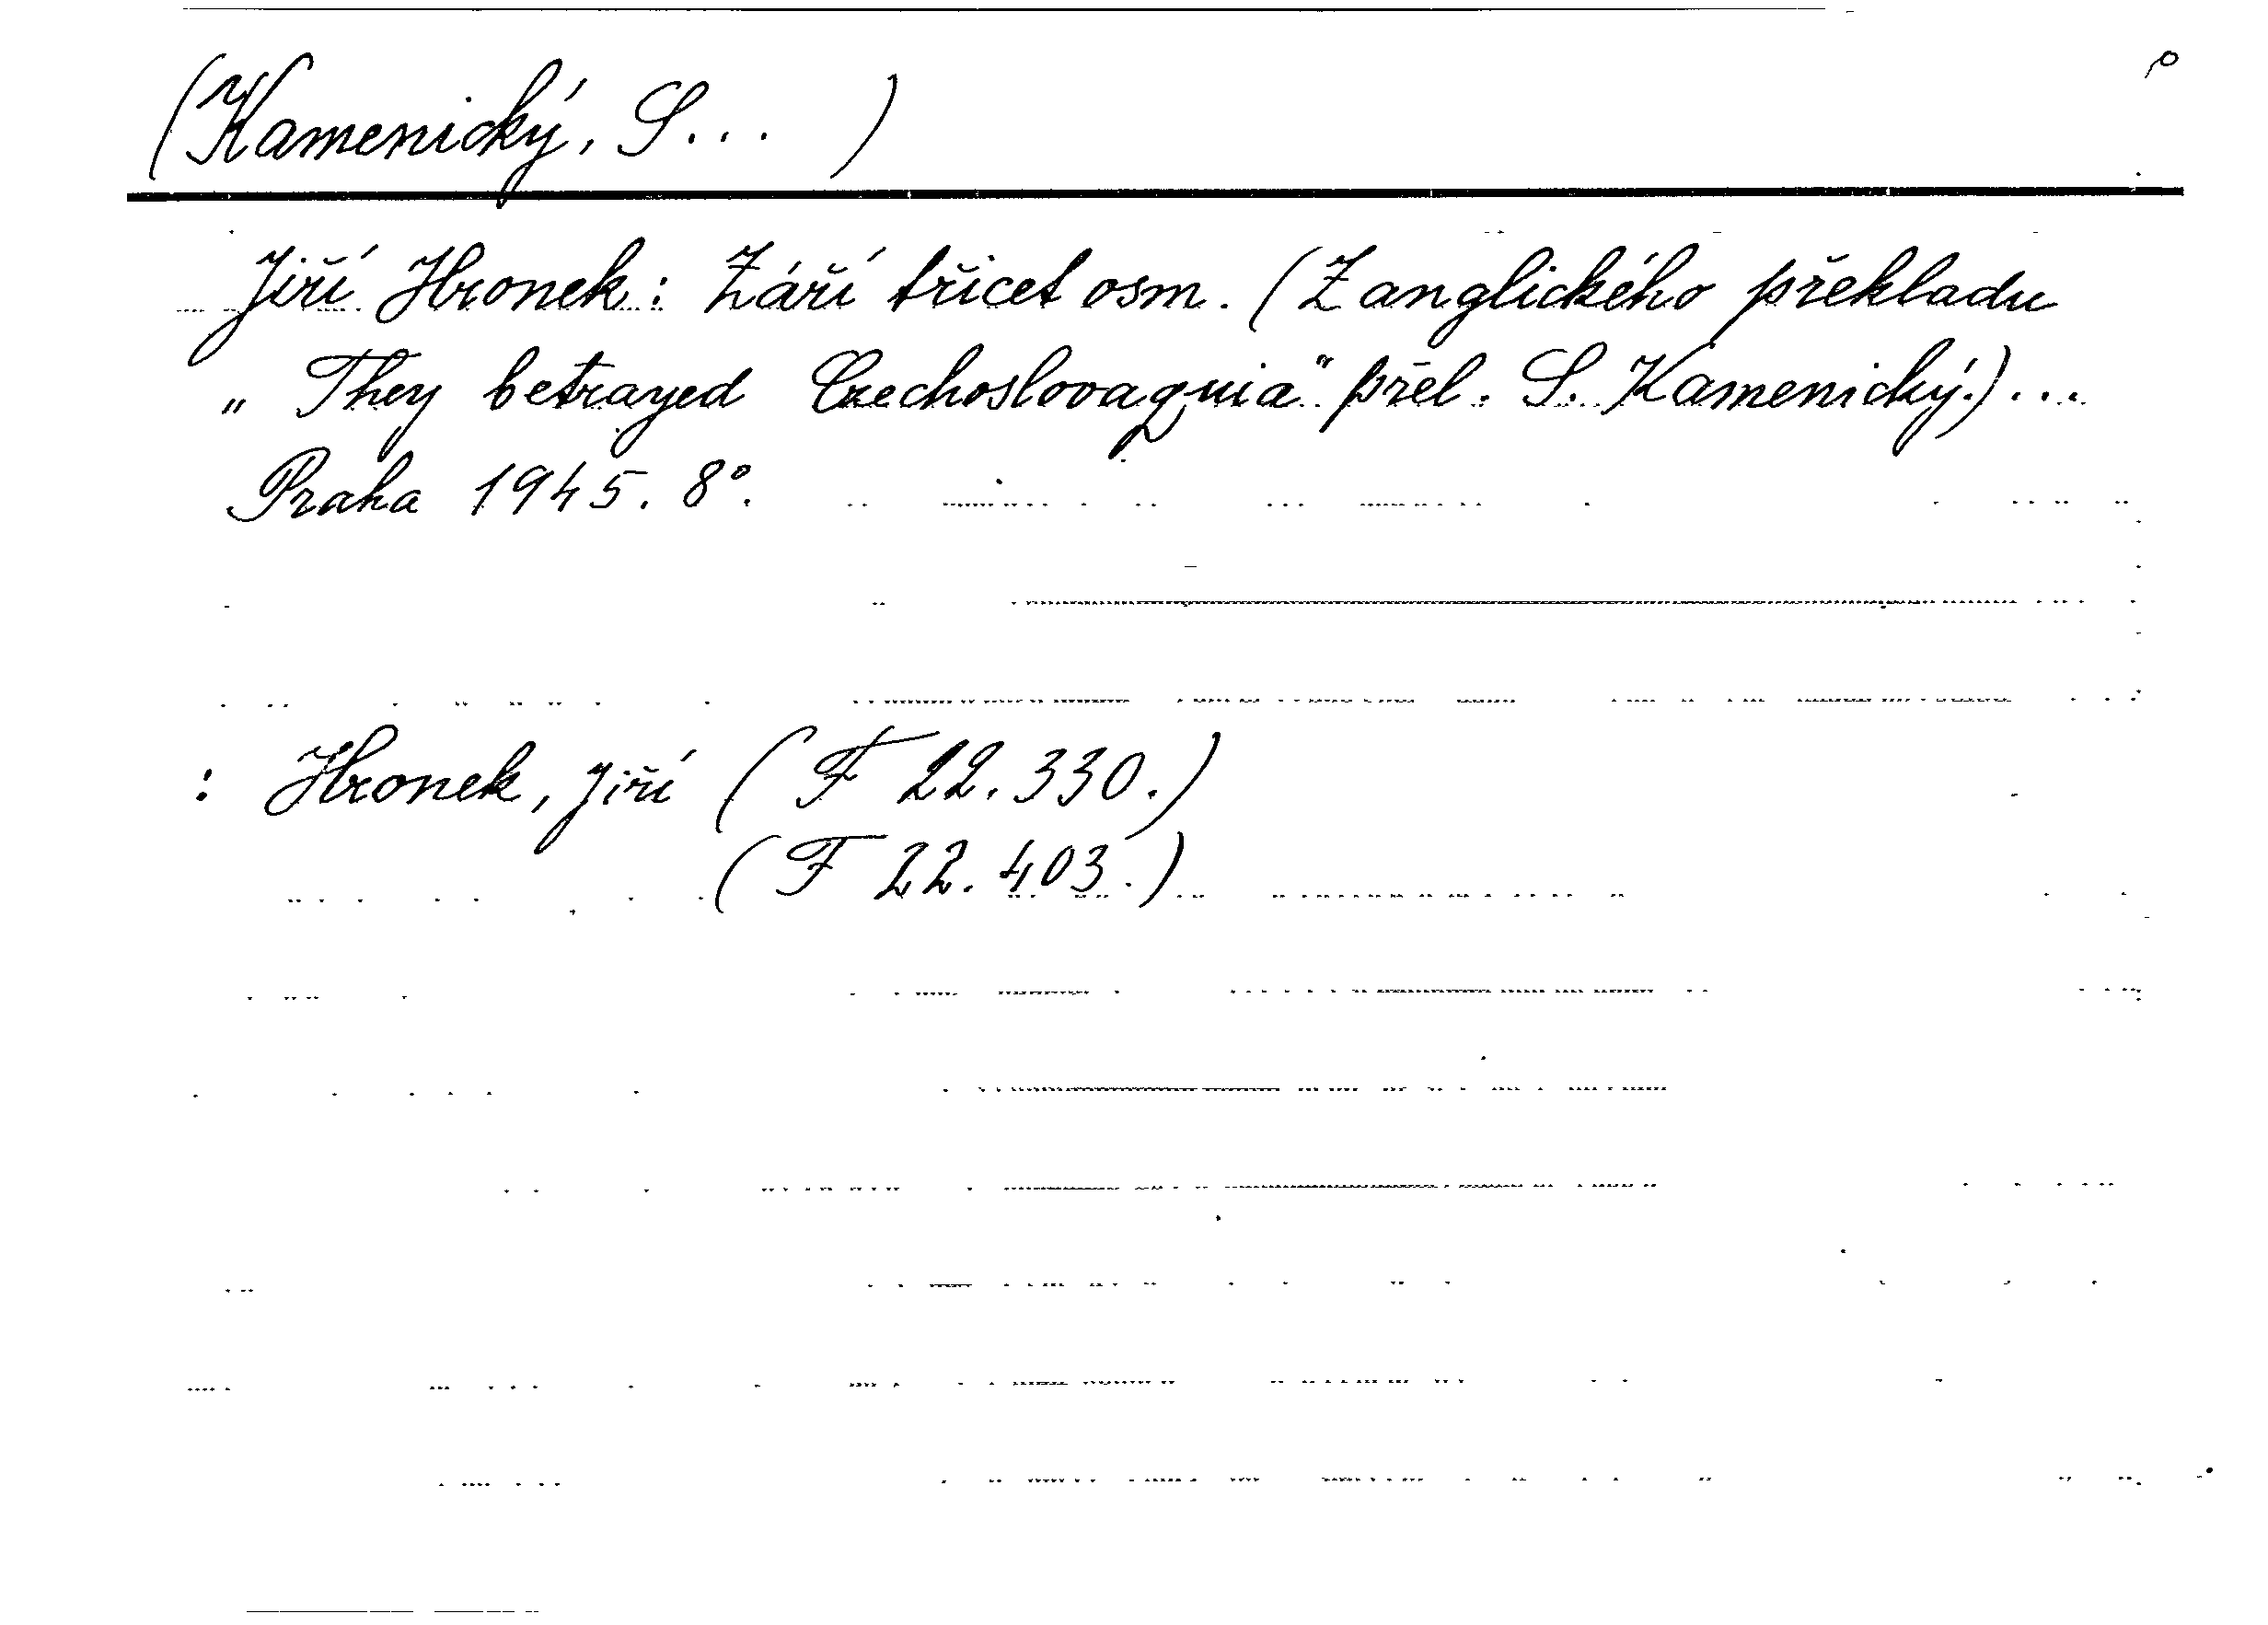 (Kamenický, S... )
Jiří Hronek: Září třicet osm. (Z anglického překladu
„They betrayed Czechoslovaquia" přel. S. Kamenický.)...
Praha 1945. 8°.
: Hronek, Jiří (F 22.330.)
(F 22.403.)